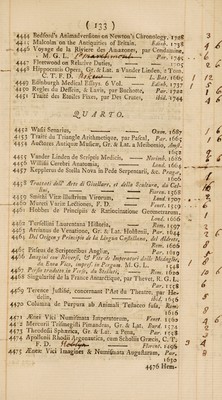 ( 133 )
4444 Bedford's Animadversions on Newton's Chronology, 1728
4445 Malcolm on the Antiquities of Britain. Edinb. 1738
4446 Voyage de la Riviere des Amazones, par Condamine,
M. G. L. Par. 1745
4447 Fleetwood on Relative Duties, 1705
4448 Hippocratis Opera, Gr. & Lat. a Vander Linden, 2 Tom.
C. T. F. D. L. Bat. 1665
4449 Edinburgh Medical Essays. 6 Vol. Edinb. 1737
4450 Regles du Dessein, & Lavis, par Buchotte, Par. 1722
4451 Traité des Etudes Fines, par Des Crates, ibid. 1744
QUARTO.
4452 Wasii Senarius, Oxon. 1687
4453 Traité du Triangle Arithmetique, par Pascal, Par. 1665
4454 Auctores Antiquæ Musicæ, Gr. & Lat. a Meibomio, Amst.
1652
4455 Vander Linden de Scriptis Medicis, Norimb. 1686
4456 Willisii Cerebri Anatomia, Lond. 1664
4457 Kepplerus de Stella Nova in Pede Serpentarii, &c. Prag.
1606
4458 Trattati dell' Arte di Gioellare, et della Scultura, da Cel-
lini, Firenz. 1568
4459 Smithi Vitæ Illustrium Virorum, Lond. 1707
4460 Mureti Variæ Lectiones, F. D. Ven. 1559
4461 Hobbes de Principiis & Ratiocinatione Geometrarum,
Lond. 1666
4462 Turselini Lauretana Historia, Rom. 1597
4463 Arrianus de Venatione, Gr. & Lat. Holstenii, Par. 1644
4465 Del Origen y Principio de la Lengua Castellana, del Aldrete,
Rom. 1606
4466 Pitseus de Scriptoribus Angliæ, Par. 1619
4466 Imagini con Riversi, & Vite de Imperatori dalle Medaglie,
da Enea Vico, impref. in Pergam. M. G. L. 1548
4467 Persio tradotto in Verso, da Stelluti, Rom. 1630
4468 Singularité de la France Antarctique, par Thevet, R. G. L.
Par. 1558
4469 Terence Justifié, concernant l'Art du Theatre, par He-
delin, ibid. 1656
4470 Columna de Purpura ab Animali Testaceo fusa, Rom.
1616
4471 Æneæ Vici Numismata Imperatorum, Venet. 1560
4472 Mercurii Trismegisti Pimandras, Gr. & Lat. Burd. 1574
4473 Theodosii Sphærica, Gr. & Lat. a Pena, Par. 1558
4474 Apollonii Rhodii Argonautica, cum Scholiis Græcis, C. T.
F. D. Florent. 1496
4475 Æneæ Vici Imagines & Numismata Augustarum, Par.
1619
4476 Hem-